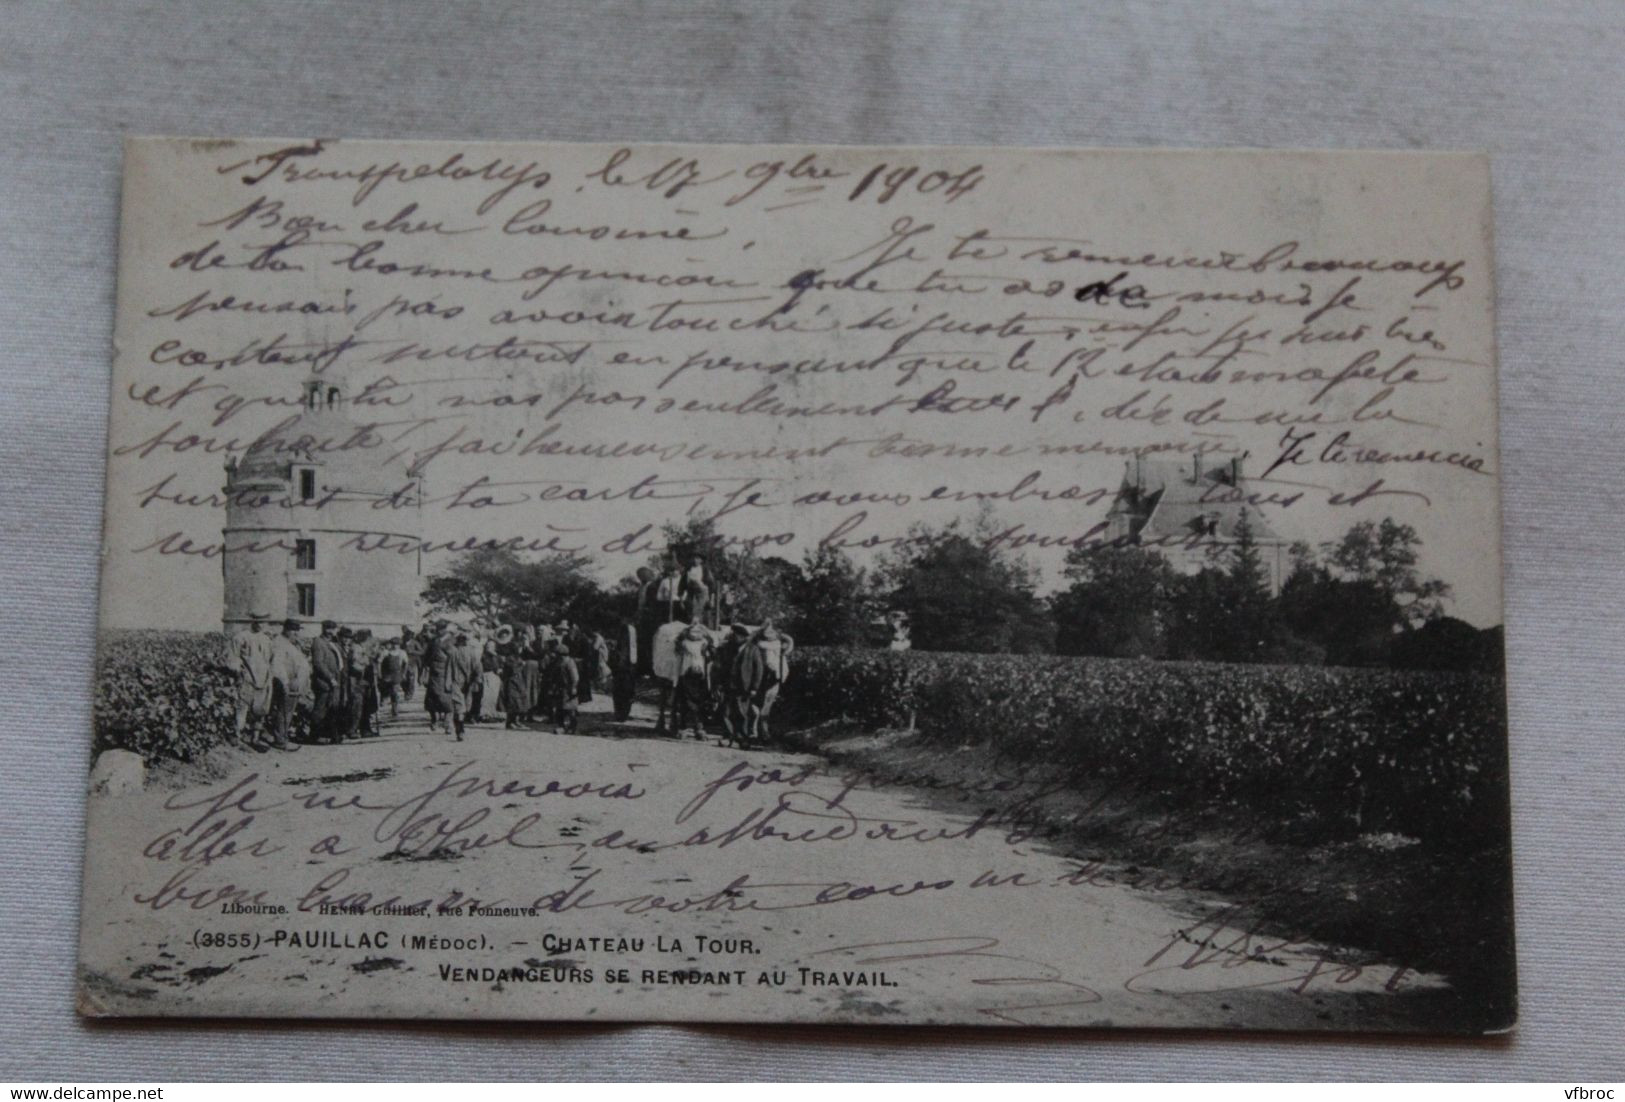 le 17 9bre 1904
Bien cher Cousine, Je te remercie beaucoup
de ta bonne opinion que tu as de moi je
pensais pas avoir touché si juste, enfin je suis très
content surtout en pensant que le 12 etait ma fete
et que tu pas seulement de me la
souhaité, j'ai heureusement bonne memoire. Je te remercie
surtout de ta carte, je vous embrasse tous et
vous remercie de vos bons souhaits
Je ne prevois pas
aller a en attendant
bon baiser de votre cousin
Libourne. HENRY Guillier, rue Fonneuve.
(3855) - PAUILLAC (MÉDOC). — CHATEAU LA TOUR.
VENDANGEURS SE RENDANT AU TRAVAIL.
vfbroc
delcampe.net